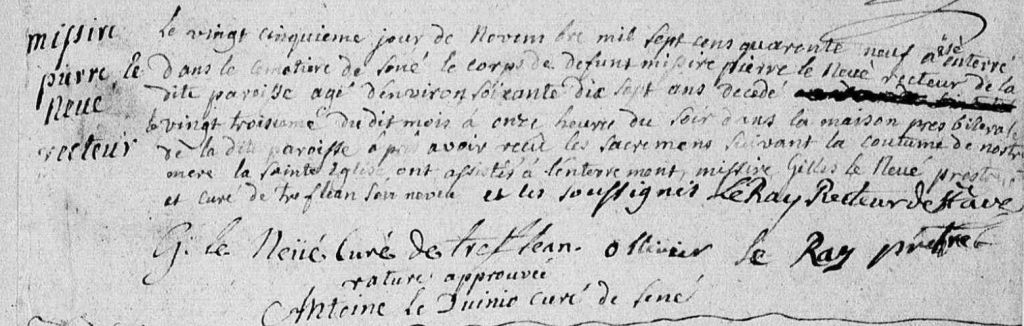 missire
pierre le
Neué
recteur
Le vingt cinquieme jour de Novembre mil sept cens quarente neuf a esté enterré
dans le cemetiere de sené le corps de defunt missire pierre le Neué recteur de la
dite paroisse agé denviron soixante dix sept ans decedé
le vingt troisieme du dit mois a onze heurre du soir dans la maison presbiterale
de la dite paroisse apres avoir recu les sacremens suivant la coutume de nostre
mere la sainte Eglise, ont assistés a lenterrement, missire Gilles le Neué prestre
et curé de treflean son neveu et les soussignes LeRay Recteur de St ave
G. le Neüé Curé de treflean ollivier le Ray prêtre
rature approuvée
Antoine le Duinio curé de sené